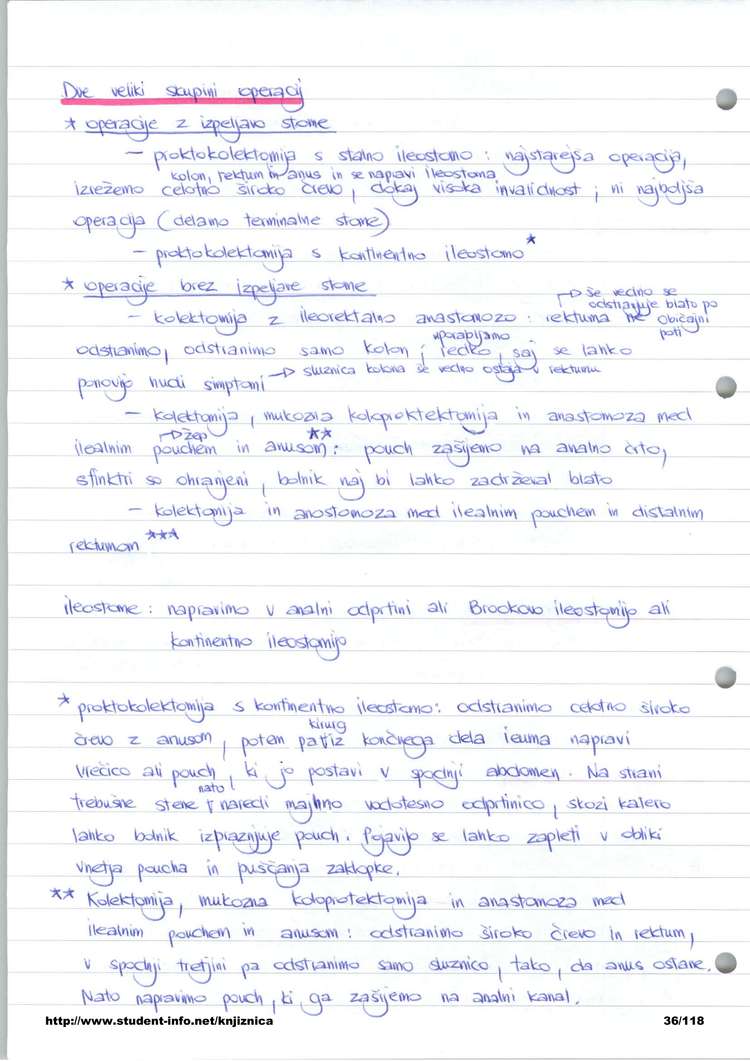 Dve veliki skupini operacij
* operacije z izpeljavo stome
– proktokolektomija s stalno ileostomo : najstarejša operacija,
kolon, rektum in anus in se napravi ileostoma
izrežemo celotno široko črevo , dokaj visoka invalidnost ; ni najboljša
operacija (delamo terminalne stome)
– proktokolektomija s kontinentno ileostomo *
* operacije brez izpeljave stome
→ še vedno se
odstranjuje blato po
– kolektomija z ileorektalno anastomozo : rektuma ne običajni
poti
uporabljamo
odstranimo, odstranimo samo kolon ; redko , saj se lahko
ponovijo hudi simptomi → sluznica kolona še vedno ostaja v rektumu
– kolektomija , mukozna koloproktektomija in anastomoza med
→ žep **
ilealnim pouchem in anusom : pouch zašijemo na analno črto,
sfinktri so ohranjeni , bolnik naj bi lahko zadrževal blato
– kolektomija in anostomoza med ilealnim pouchem in distalnim
rektumom ***
ileostome : napravimo v analni odprtini ali Brookovo ileostomijo ali
kontinentno ileostomijo
* proktokolektomija s kontinentno ileostomo: odstranimo celotno široko
kirurg
črevo z anusom , potem pa iz končnega dela ileuma napravi
vrečico ali pouch , ki jo postavi v spodnji abdomen . Na strani
nato
trebušne stene naredi majhno vodotesno odprtinico , skozi katero
lahko bolnik izpraznjuje pouch . Pojavijo se lahko zapleti v obliki
vnetja poucha in puščanja zaklopke.
** Kolektomija, mukozna koloprotektomija in anastomoza med
ilealnim pouchem in anusom : odstranimo široko črevo in rektum,
v spodnji tretjini pa odstranimo samo sluznico , tako , da anus ostane.
Nato napravimo pouch , ki ga zašijemo na analni kanal .
http://www.student-info.net/knjiznica 36/118